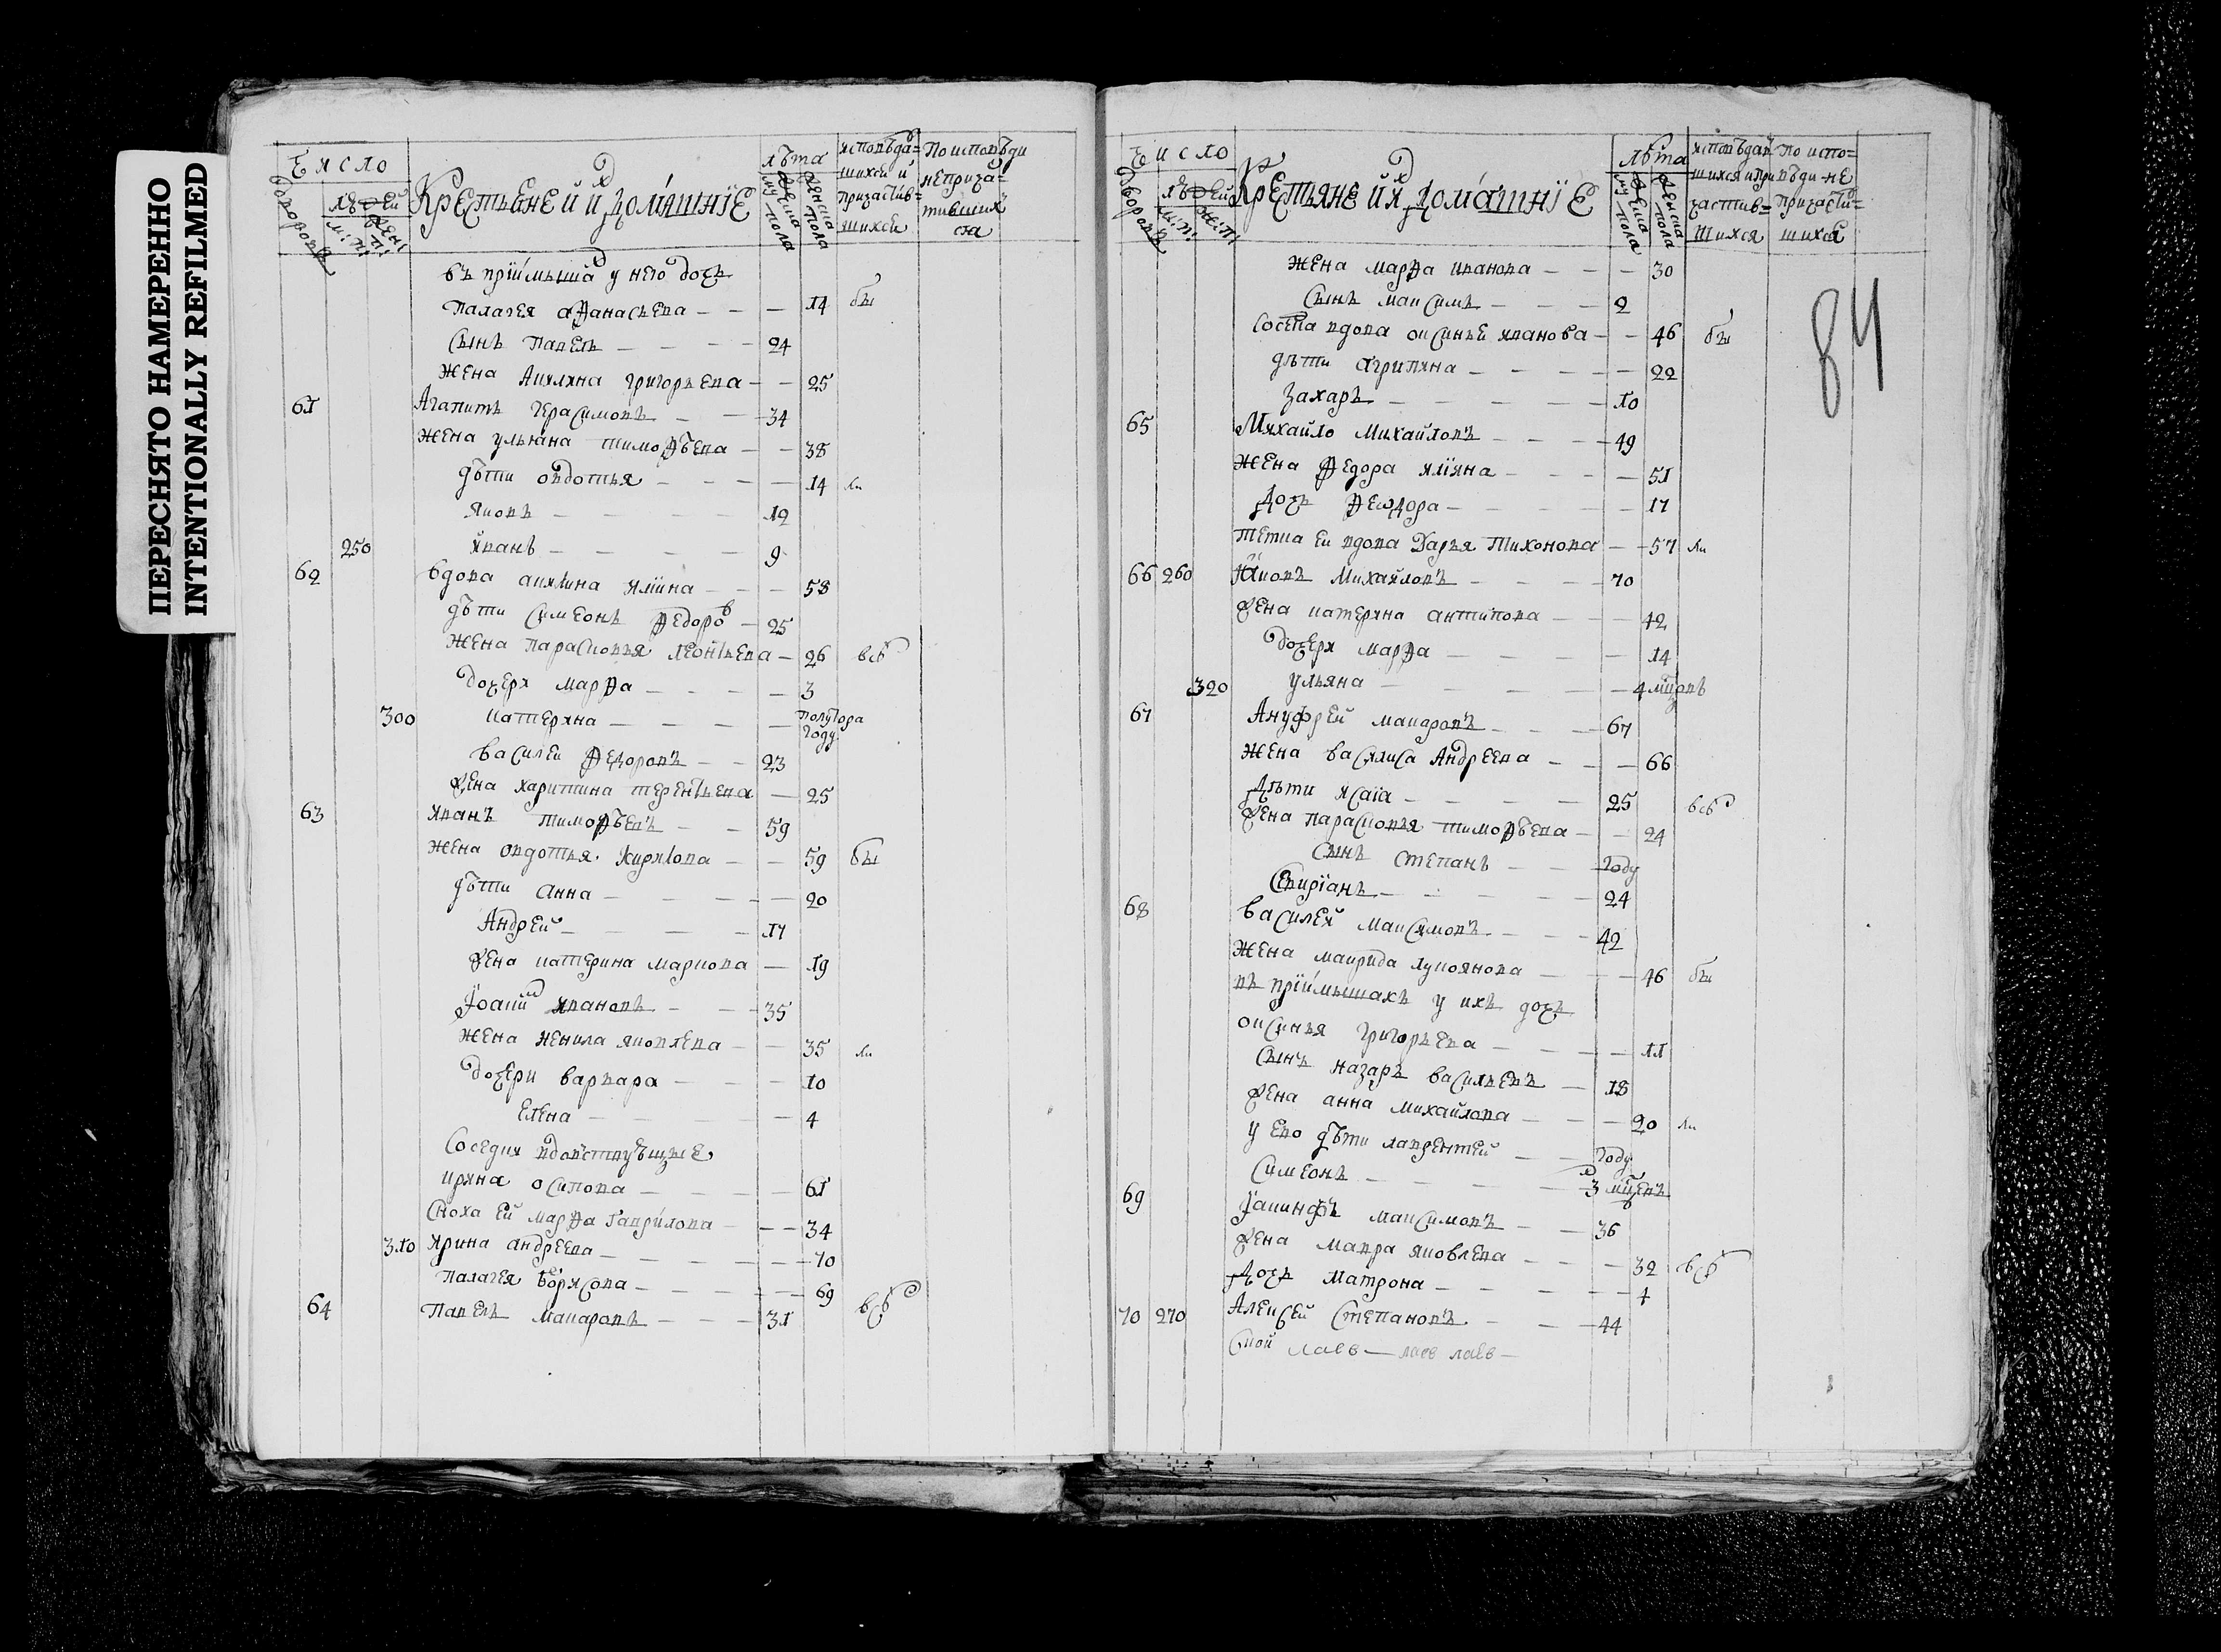 ПЕРЕСНЯТО НАМЕРЕННО
INTENTIONALLY REFILMED
Число
лѣта
исповѣда=
По исповѣди
дворовъ
людей
м: п:
женс: п:
Крестьяне и их домашніе
мужеска пола
женска пола
шихся и
причастив=
шихся
непричас=
тившихся
въ пріймышах у него дочь
Палагея Афанасьева — — — 14 бы
Сынъ Павелъ — — — — 24
Жена Акилина Григорьева — — 25
61 Агапитъ Герасимовъ — — 34
Жена Ульяна Тимофѣева — — 38
дѣти Овдотья — — — — 14 ли
Яковъ — — — — 12
250 Иванъ — — — — 9
62 Вдова Акилина Иліина — — — 58
дѣти Симеонъ Федоровъ — 25
Жена Парасковья Леонтьева — 26 всѣ
дочери Марфа — — — — 3
300 Катерина — — — — полутора году
Василеи Федоровъ — — 23
Жена Харитина Терентьева — 25
63 Иванъ Тимофѣевъ — — 59
Жена Овдотья Кирилова — — 59 бы
дѣти Анна — — — — 20
Андрей — — — — 17
Жена Катерина Маркова — 19
Іоаннъ Ивановъ — — 35
Жена Ненила Яковлева — — 35 ли
дочери Варвара — — — 10
Елена — — — — 4
Соседки вдовствующые
Ирина Осипова — — — 61
Сноха ей Марфа Гаврилова — — — 34
310 Ирина Андреева — — — — 70
Палагея Борисова — — — — 69
64 Павелъ Макаровъ — — — 31 всѣ
Число
лѣта
исповѣдав
по испо=
дворовъ
людей
м: п:
ж: п:
Крестьяне и их домашніе
мужеска пола
женска пола
шихся и при
частив=
шихся
вѣди не
причастив=
шихся
84
Жена Марфа Иванова — — — 30
Сынъ Максимъ — — — 2
Соседка вдова Оксинья Иванова — — 46 бы
дѣти Агрипина — — — — 22
Захаръ — — — — — 10
65 Михайло Михайловъ — — — 49
Жена Федора Иліина — — — — 51
Дочь Феодора — — — — 17
тетка ей вдова Дарья Тихонова — — 57 ли
66 260 Яковъ Михайловъ — — — 70
Жена Катерина Антипова — — — 42
дочери Марфа — — — — 14
320 Ульяна — — — — 4 мцовъ
67 Ануфрей Макаровъ — — — 67
Жена Василиса Андреева — — — 66
Дѣти Исаіа — — — — 25 всѣ
Жена Парасковья Тимофѣева — — 24
Сынъ Степанъ — — году
Свиріанъ — — — — 24
68 Василей Максимовъ — — — 42
Жена Маврида Лукоянова — — — 46 бы
въ пріймышахъ у ихъ дочь
Оксинья Григорьева — — — — 11
Сынъ Назаръ Васильевъ — 18
Жена Анна Михайлова — — — 20 ли
у ево дѣти Лаврентей — — году
Симеонъ — — — — 3 мцевъ
69 Іакинфъ Максимовъ — — 36
Жена Мавра Яковлева — — — 32 всѣ
Дочь Матрона — — — — — 4
70 270 Алексей Степановъ — — — 44